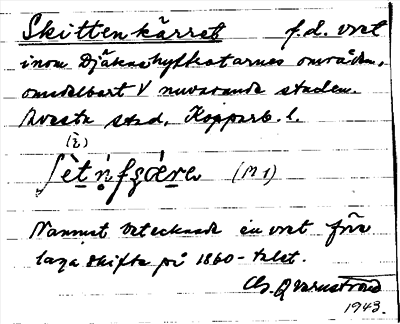 Skittenkärret f.d. vret
inom Djäknehyttatärnes områden,
omedelbart V nuvarande staden.
Avesta stad, Kopparb. l.
(ì)
ʃètṇ́fɡæra (M1)
Namnet betecknade en vret före
laga skifte på 1860-talet.
Ch. Qvarnström
1943.